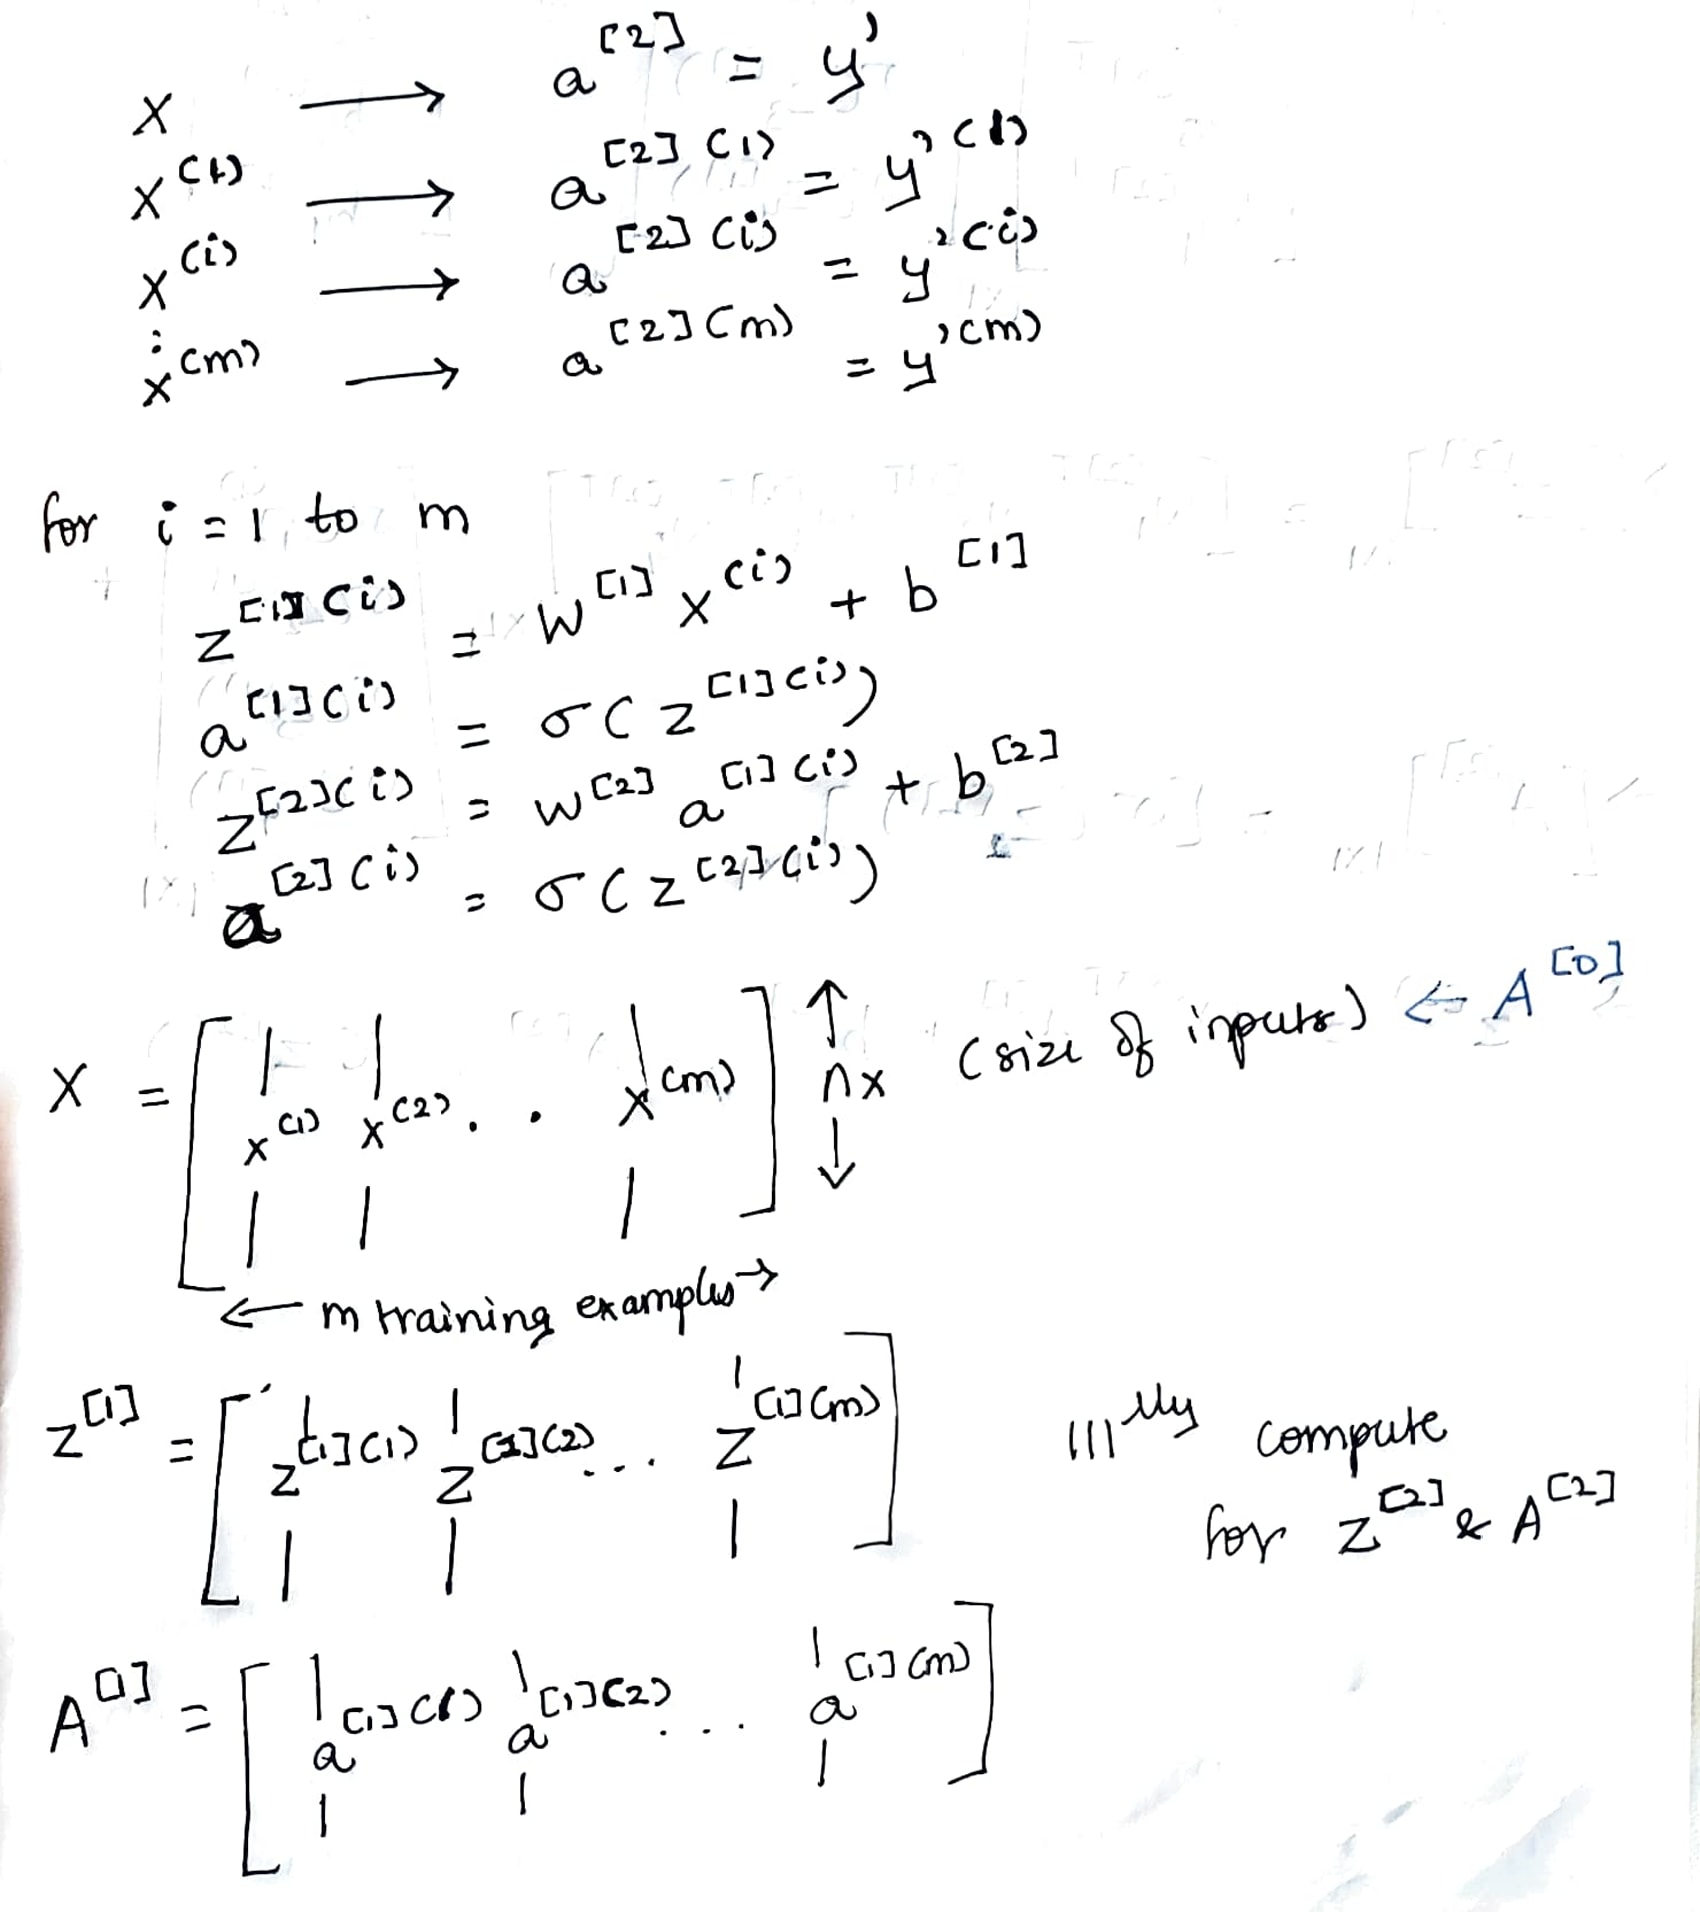 x → a^[2] = y'
x^(1) → a^[2](1) = y'^(1)
x^(i) → a^[2](i) = y'^(i)
⋮
x^(m) → a^[2](m) = y'^(m)
for i = 1 to m
z^[1](i) = W^[1] x^(i) + b^[1]
a^[1](i) = σ(z^[1](i))
z^[2](i) = W^[2] a^[1](i) + b^[2]
a^[2](i) = σ(z^[2](i))
X = [ x^(1) x^(2) . . x^(m) ] ↑ nx ↓ (size of inputs) ← A^[0]
← m training examples →
z^[1] = [ z^[1](1) z^[1](2) ... z^[1](m) ]
lllly compute
for z^[2] & A^[2]
A^[1] = [ a^[1](1) a^[1](2) ... a^[1](m) ]